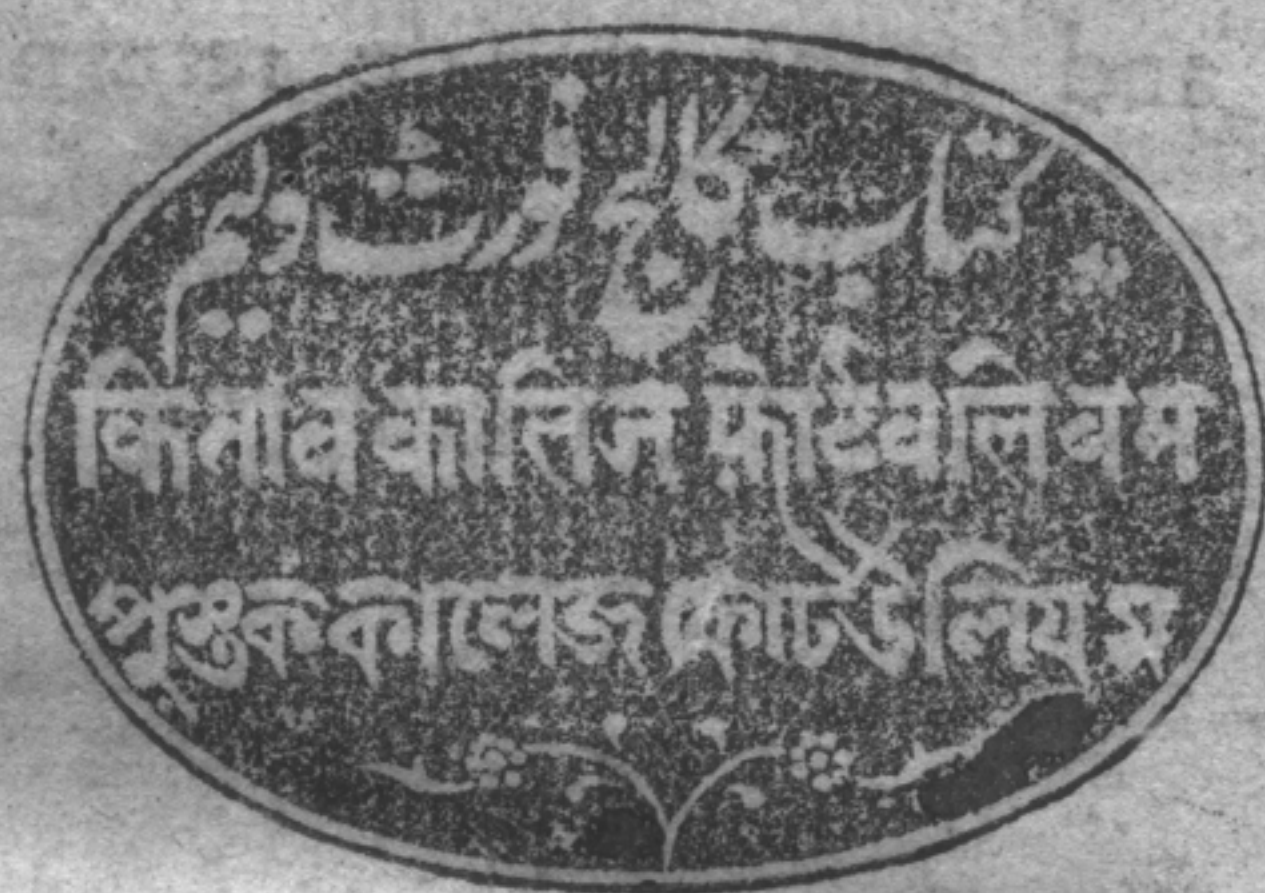 کتاب کالج فورٹ ولیم
किताब कालिज फ़ोर्ट वलियम
পুস্তক কালেজ ফোর্ট উলিযম